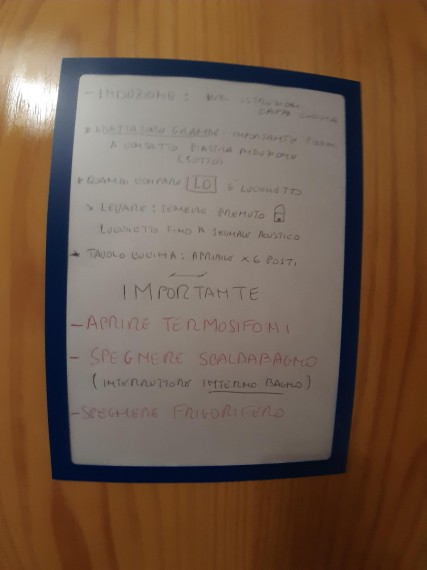 - INDUZIONE: ISTRUZIONI
CAPPA CUCINA
* ADATTATORE GRANDE IMPORTANTE
A CONTATTO PIASTRA INDUZIONE
(SOTTO)
* QUANDO COMPARE LO O LUCCHETTO
LEVARE: TENERE PREMUTO
LUCCHETTO FINO A SEGNALE ACUSTICO
* TAVOLO CUCINA: APRIBILE X 6 POSTI
IMPORTANTE
- APRIRE TERMOSIFONI
- SPEGNERE SCALDABAGNO
(INTERRUTTORE INTERNO BAGNO)
- SPEGNERE FRIGORIFERO